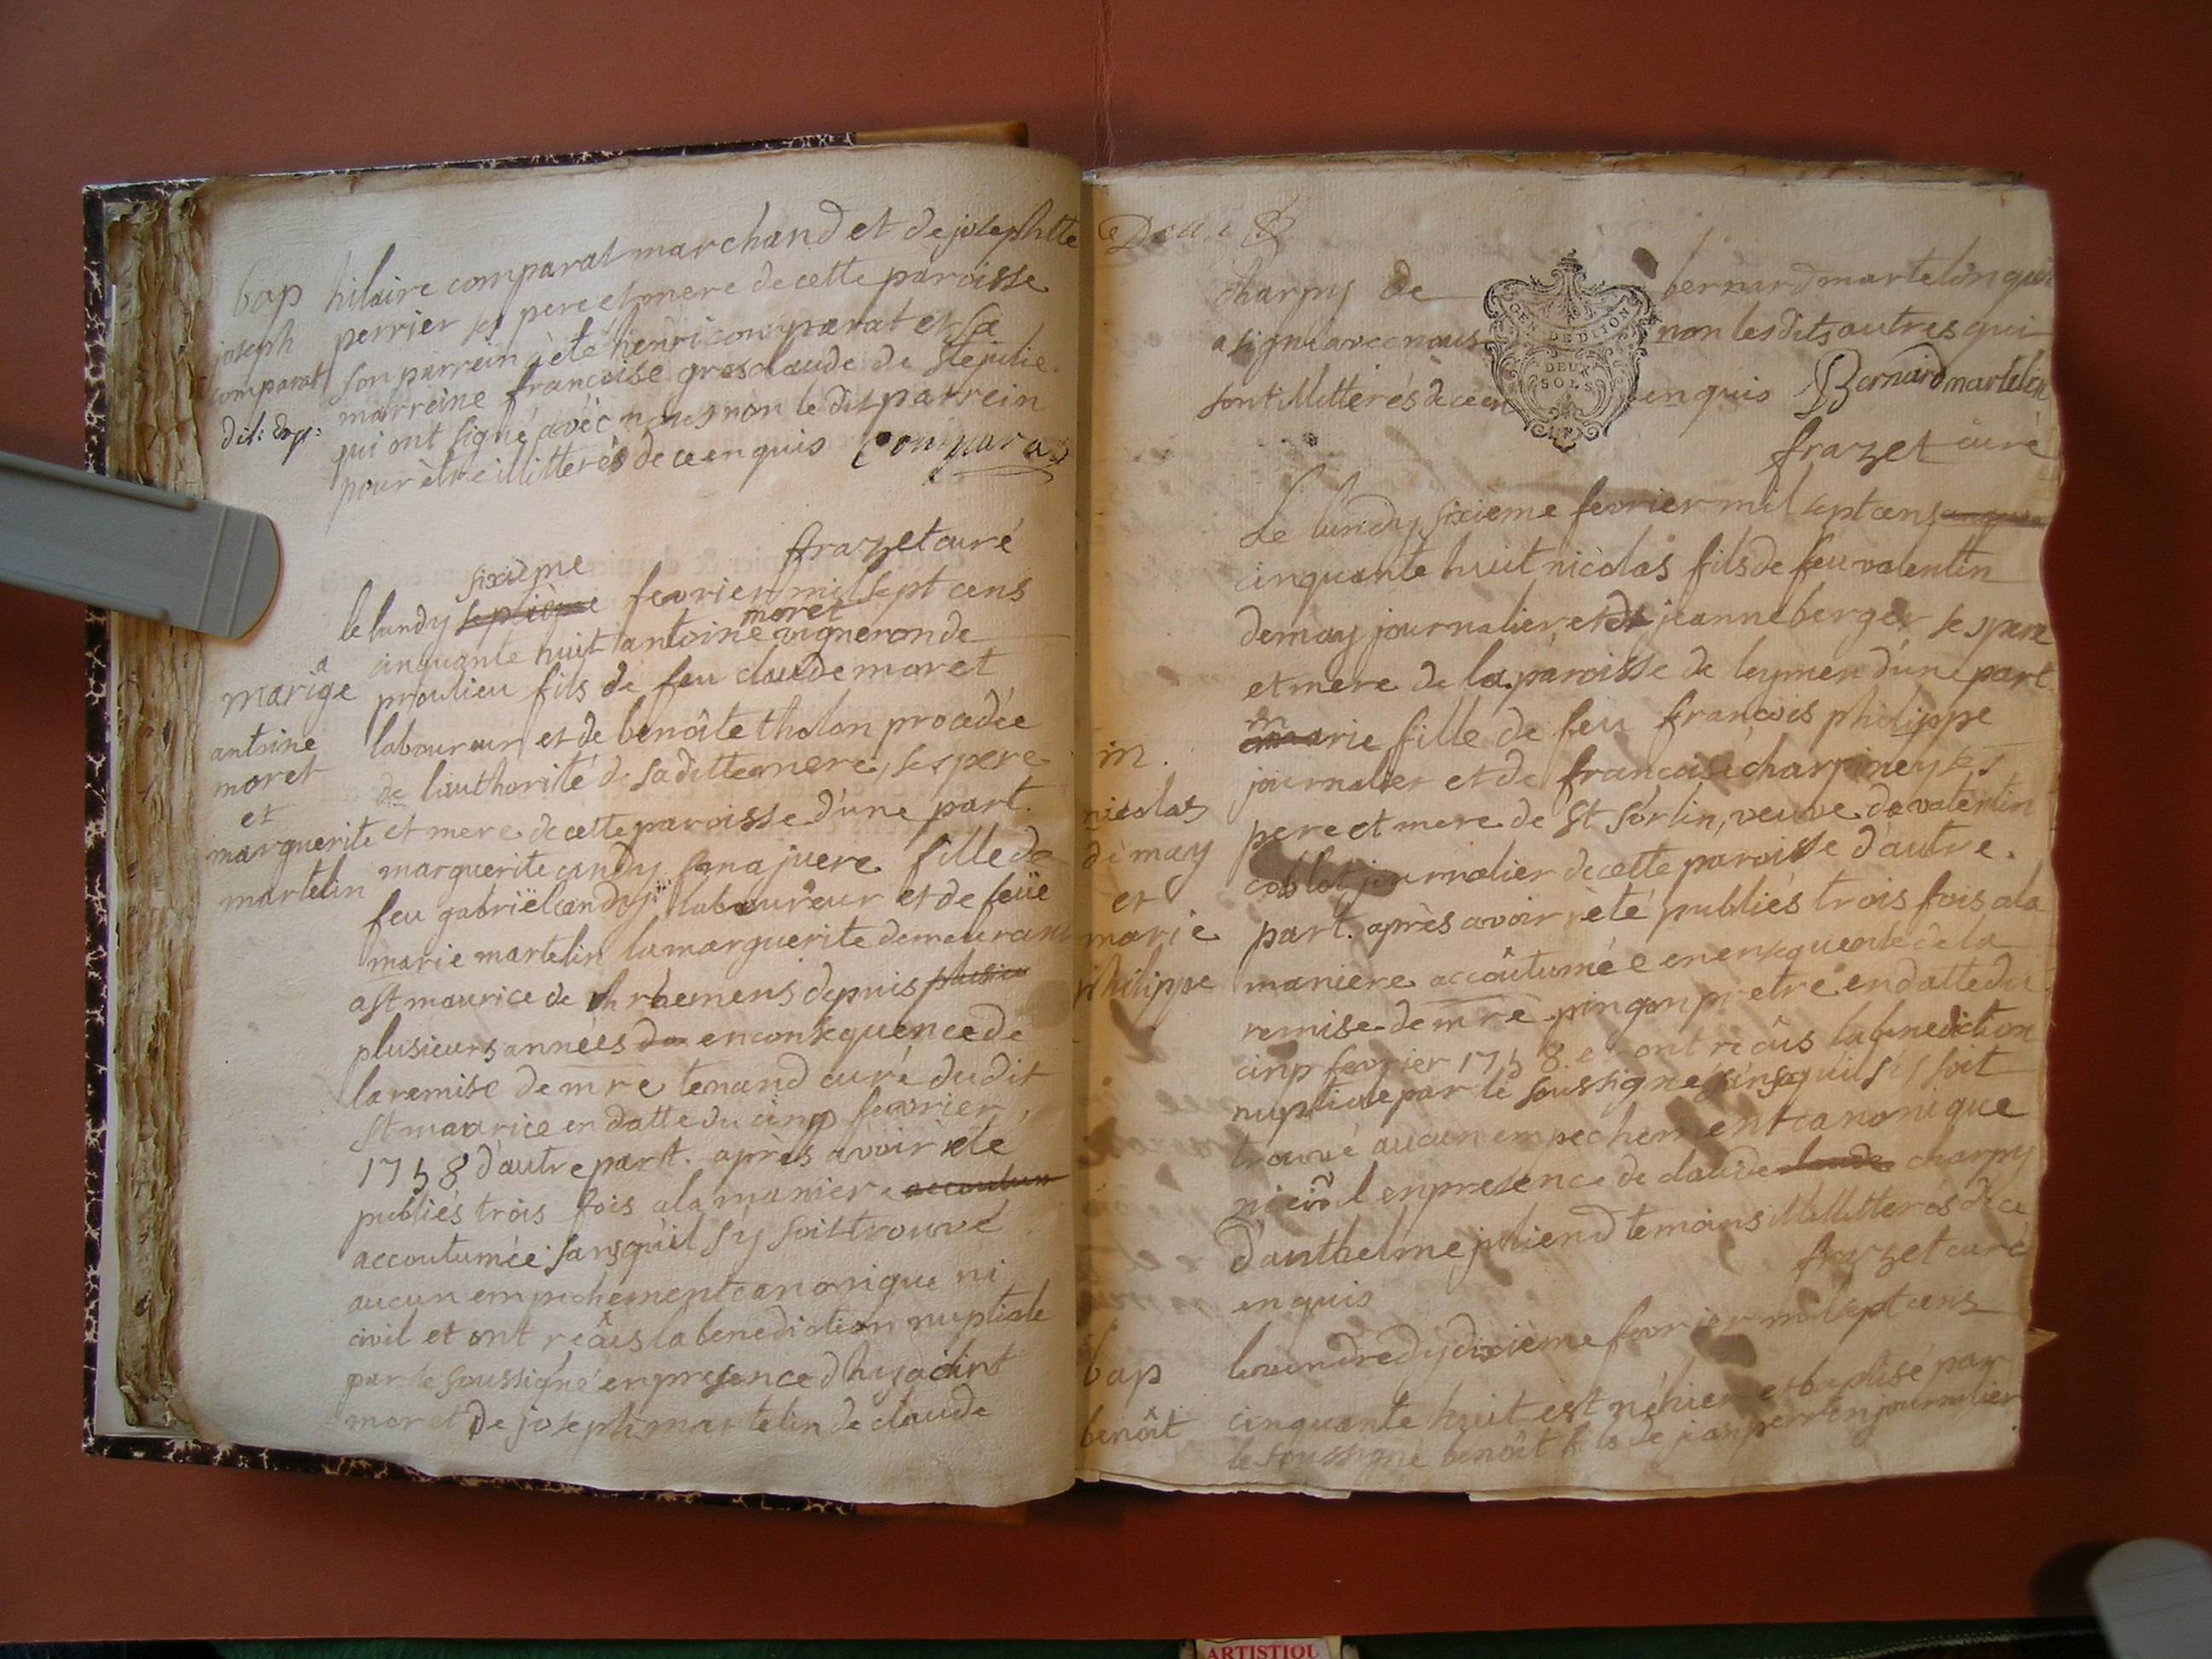 bap
joseph
comparat
hilaire comparat marchand et de josephtte
perrier ses pere et mere de cette paroisse
son parrein à èté henri comparat et sa
marreine francoise grosclaude de ste julie
qui ont signé avec nous non le dit parrein
pour ètre illitterés de ce enquis comparat
frazet curé
sixième
le lundy septième fevrier mil sept cens
moret
cinquante huit antoine vigneron de
proulieu fils de feu claude moret
laboureur et de benôite tholon procedée
de l'authorité de sa ditte mere, ses pere
et mere de cette paroisse d'une part.
marguerite candy sa majuere fille de
feu gabriël candy laboureur et de feüe
marie martelin la marguerite demeurant
a st maurice de rhemens depuis plusieu
plusieurs années da en consequence de
la remise de mre tenand curé du dit
st maurice en datte du cinq fevrier
1758 d'autre part. après avoir èté
publiés trois fois a la maniere accoutum
accoutumée sans qu'il s'y soit trouvé
aucun empechement canonique ni
civil et ont reçûs la benediction nuptiale
par le soussigné en presence d'hyacint
moret de joseph martelin de claude
mariage
antoine
moret
et
marguerite
martelin
charpy de bernard martelin qui
a signé avec nous non les dits autres qui
sont illitterés de ce enquis Bernard martelin
GEN DE LION
DEUX
SOLS
frazet curé
Le lundy sixième fevrier mil sept cens
cinquante huit nicolas fils de feu valentin
demay journalier et de jeanne berger ses pere
et mere de la paroisse de leymen d'une part
marie fille de feu francois philippe
journalier et de francoise charpiney ses
pere et mere de st sorlin, veuve de valentin
coblot journalier de cette paroisse d'autre
part. après avoir èté publiés trois fois a la
maniere accoûtumée en consequence de la
remise de mre pingon pretre en datte du
cinq fevrier 1758 et ont reçûs la benediction
nuptiale par le soussigné sans qu'il s'y soit
trouvé aucun empechement canonique
ni civil en presence de claude claude charpy
d'anthelme juliend temoins illitterés de ce
enquis frazet curé
m.
nicolas
demay
et
marie
philippe
bap
benoît
le vendredy dixième fevrier mil sept cens
cinquante huit est né hier et baptisé par
le soussigné benoît fils de jean perren journalier